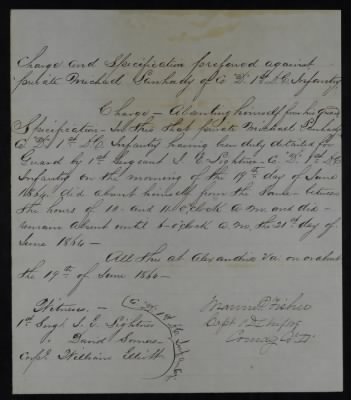 Charge and Specification prefered against
private Michael Sunhady of Co "D" 1st D.C. Infantry
Charge – Absenting himself from his Guard
Specification – In this that private Michael Sunhady
Co "D" 1st D.C. Infantry having been duly detailed for
Guard by 1st Sergeant J. E. Co "D" 1st D.C.
Infantry on the morning of the 19th day of June
1864 did absent himself from the same between
the hours of 10 and 11 o'clock a.m. and did
remain absent until 6 o'clock a.m. the 21st day of
June 1864 –
All this at Alexandria Va. on or about
the 19th of June 1864 –
Witness. –
1st Sergt J. E.
" David
Corpl. William Elliott
Co "D" 1st DC Infty
Fisher
Capt 1 DC
Comdg Co D